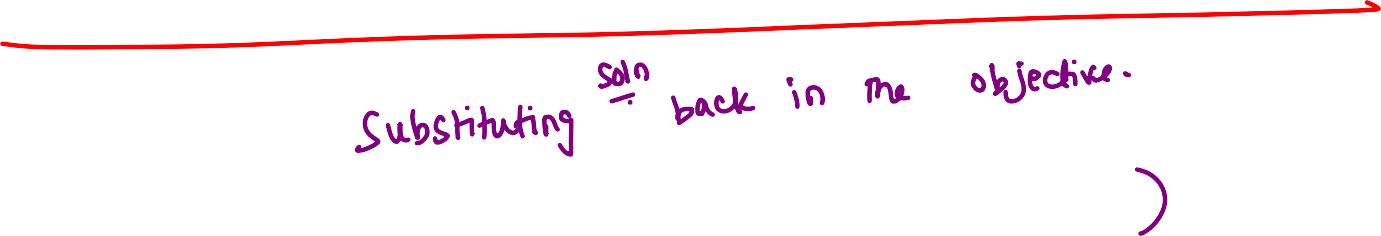 Substituting soln back in the objective.
)